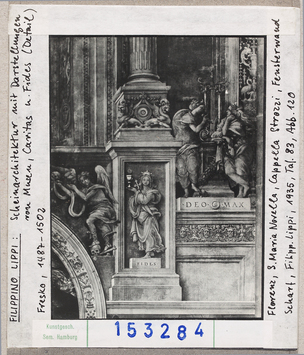 FILIPPINO LIPPI: Scheinarchitektur mit Darstellungen
von Musen, Caritas u. Fides (Detail)
Fresko, 1487-1502
DEO MAX
FIDES
Florenz, S. Maria Novella, Cappella Strozzi, Fensterwand
Scharf, Filipp. Lippi, 1935, Taf. 83, Abb 120
Kunstgesch.
Sem. Hamburg
153284